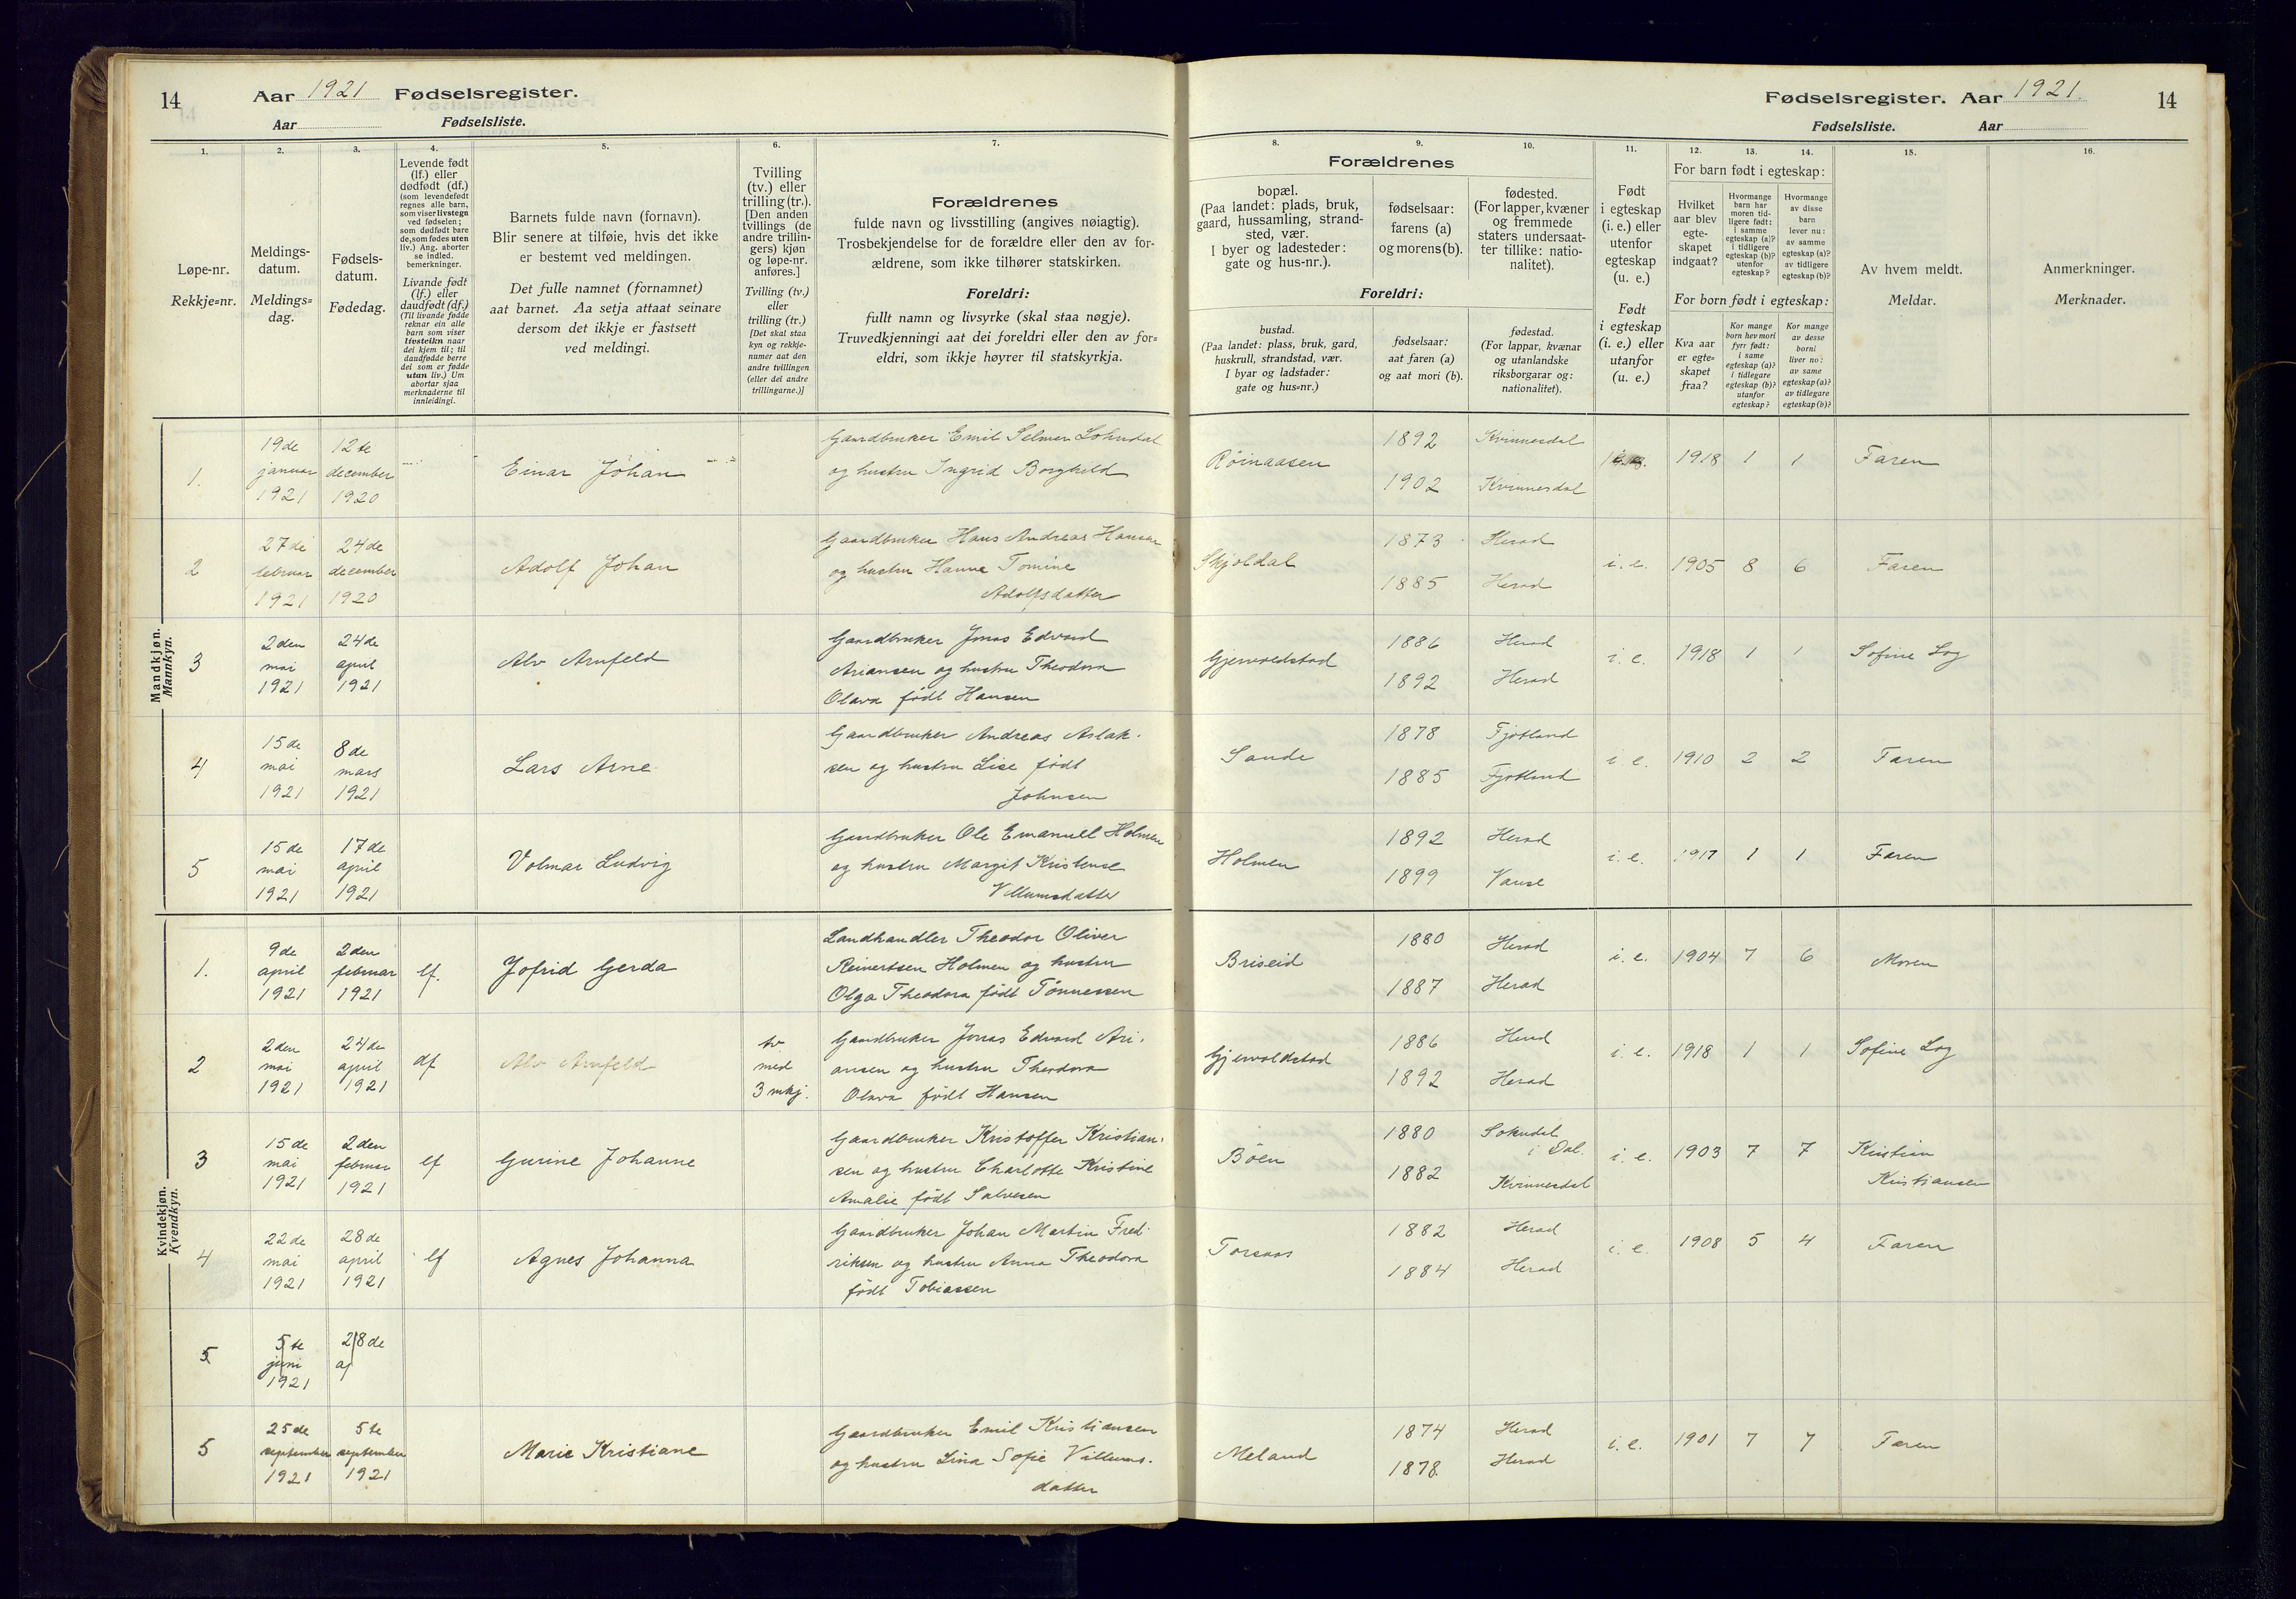 14
Aar 1921 Fødselsregister.
Aar
Fødselsliste.
Fødselsregister. Aar 1921.
14
Fødselsliste.
Aar
1.
2.
3.
4.
5.
6.
7.
8.
9.
10.
11.
12.
13.
14.
15.
16.
Løpe-nr.
Rekkje=nr.
Meldings-
datum.
Meldings=
dag.
Fødsels-
datum.
Fødedag.
Levende født
(lf.) eller
dødfødt (df.)
(som levendefødt
regnes alle barn,
som viser livstegn
ved fødselen;
som dødfødt bare
de, som fødes uten
liv.) Ang. aborter
se indled.
bemerkninger.
Livande født
(lf.) eller
daudfødt (df.)
(Til livande fødde
reknar ein alle
barn som viser
livsteikn naar
dei kjem til; til
daudfødde berre
dei som er fødde
utan liv.) Um
abortar sjaa
merknaderne til
innleidingi.
Barnets fulde navn (fornavn).
Blir senere at tilføie, hvis det ikke
er bestemt ved meldingen.
Det fulle namnet (fornamnet)
aat barnet. Aa setja attaat seinare
dersom det ikkje er fastsett
ved meldingi.
Tvilling
(tv.) eller
trilling (tr.).
[Den anden
tvillings (de
andre trillin-
gers) kjøn
og løpe-nr.
anføres.]
Tvilling (tv.)
eller
trilling (tr.)
[Det skal staa
kyn og rekkje-
numer aat den
andre tvillingen
(eller dei andre
trillingarne.)]
Forældrenes
fulde navn og livsstilling (angives nøiagtig).
Trosbekjendelse for de forældre eller den av for-
ældrene, som ikke tilhører statskirken.
Foreldri:
fullt namn og livsyrke (skal staa nøgje).
Truvedkjenningi aat dei foreldri eller den av for=
eldri, som ikkje høyrer til statskyrkja.
Forældrenes
bopæl.
(Paa landet: plads, bruk,
gaard, hussamling, strand-
sted, vær.
I byer og ladesteder:
gate og hus-nr.).
fødselsaar:
farens (a)
og morens (b).
fødested.
(For lapper, kvæner
og fremmede
staters undersaat-
ter tillike: natio-
nalitet).
Foreldri:
bustad.
(Paa landet: plass, bruk, gard,
huskrull, strandstad, vær.
I byar og ladstader:
gate og hus=nr.)
fødselsaar:
aat faren (a)
og aat mori (b).
fødestad.
(For lappar, kvænar
og utanlandske
riksborgarar og:
nationalitet).
Født
i egteskap
(i. e.) eller
utenfor
egteskap
(u. e.)
Født
i egteskap
(i. e.) eller
utanfor
(u. e.)
For barn født i egteskap:
Hvilket
aar blev
egte-
skapet
indgaat?
Hvormange
barn har
moren tid-
ligere født:
i samme
egteskap (a)?
i tidligere
egteskap (b)?
utenfor
egteskap?
Hvormange
av disse
barn
lever nu:
av samme
egteskap (a)?
av tidligere
egteskap (b)?
For born født i egteskap:
Kva aar
er egte-
skapet
fraa?
Kor mange
born hev mori
fyrr født:
i same
egteskap (a)?
i tidlegare
egteskap (b)?
utanfor
egteskap?
Kor mange
av desse
borni
liver no:
av same
egteskap (a)?
av tidlegare
egteskap (b)?
Av hvem meldt.
Meldar.
Anmerkninger.
Merknader.
Mandkjøn.
Mannkyn.
1.
19de
januar
1921
12te
december
1920
Einar Johan
Gaardbruker Emil Selmer Lohndal
og hustru Ingrid Borghild
Röinaasen
1892
1902
Kvinnesdal
Kvinnesdal
1918 1 1 Faren
2
27de
februar
1921
24de
december
1920
Adolf Johan
Gaardbruker Hans Andreas Hansen
og hustru Hanna Tomine
Adolfsdatter
Skjoldal
1873
1885
Herad
Herad
i. e. 1905 8 6 Faren
3
2den
mai
1921
24de
april
1921
Alv Arnfeld
Gaardbruker Jonas Edvard
Ariansen og hustru Theodora
Olava født Hansen
Gjervoldstad
1886
1892
Herad
Herad
i. e. 1918 1 1 Sofine Log
4
15de
mai
1921
8de
mars
1921
Lars Arne
Gaardbruker Andreas Aslak-
sen og hustru Lise født
Johnsen
Sande
1878
1885
Fjotland
Fjotland
i e. 1910 2 2 Faren
5
15de
mai
1921
17de
april
1921
Volmar Ludvig
Gaardbruker Ole Emanuel Holmen
og hustru Margit Kristense
Villumsdatter
Holmen
1892
1899
Herad
Vanse
i. e. 1917 1 1 Faren
Kvindekjøn.
Kvendkyn.
1.
9de
april
1921
2den
februar
1921
lf.
Jofrid Gerda
Landhandler Theodor Oliver
Reinertsen Holmen og hustru
Olga Theodora født Tönnessen
Briseid
1880
1887
Herad
Herad
i. e. 1904 7 6 Moren
2
2den
mai
1921
24de
april
1921
df
Alv Arnfeld
tv
med
3 mkj.
Gaardbruker Jonas Edvard Ari-
ansen og hustru Theodora
Olava født Hansen
Gjervoldstad
1886
1892
Herad
Herad
i. e. 1918 1 1 Sofine Log
3
15de
mai
1921
2den
februar
1921
lf
Gurine Johanne
Gaardbruker Kristoffer Kristian-
sen og hustru Charlotte Kristine
Amalie født Salvesen
Böen
1880
1882
Sokndal
i Dal.
Kvinnesdal
i. e. 1903 7 7 Kristian
Kristiansen
4
22de
mai
1921
28de
april
1921
lf
Agnes Johanna
Gaardbruker Johan Martin Fred-
riksen og hustru Anna Theodora
født Tobiassen
Torsaas
1882
1884
Herad
Herad
i. e. 1908 5 4 Faren
5
5te
juni
1921
28de
ap
5
25de
september
1921
5te
september
1921
Marie Kristiane
Gaardbruker Emil Kristiansen
og hustru Lina Sofie Villums-
datter
Meland
1874
1878.
Herad
Herad
i. e. 1901 7 7 Faren